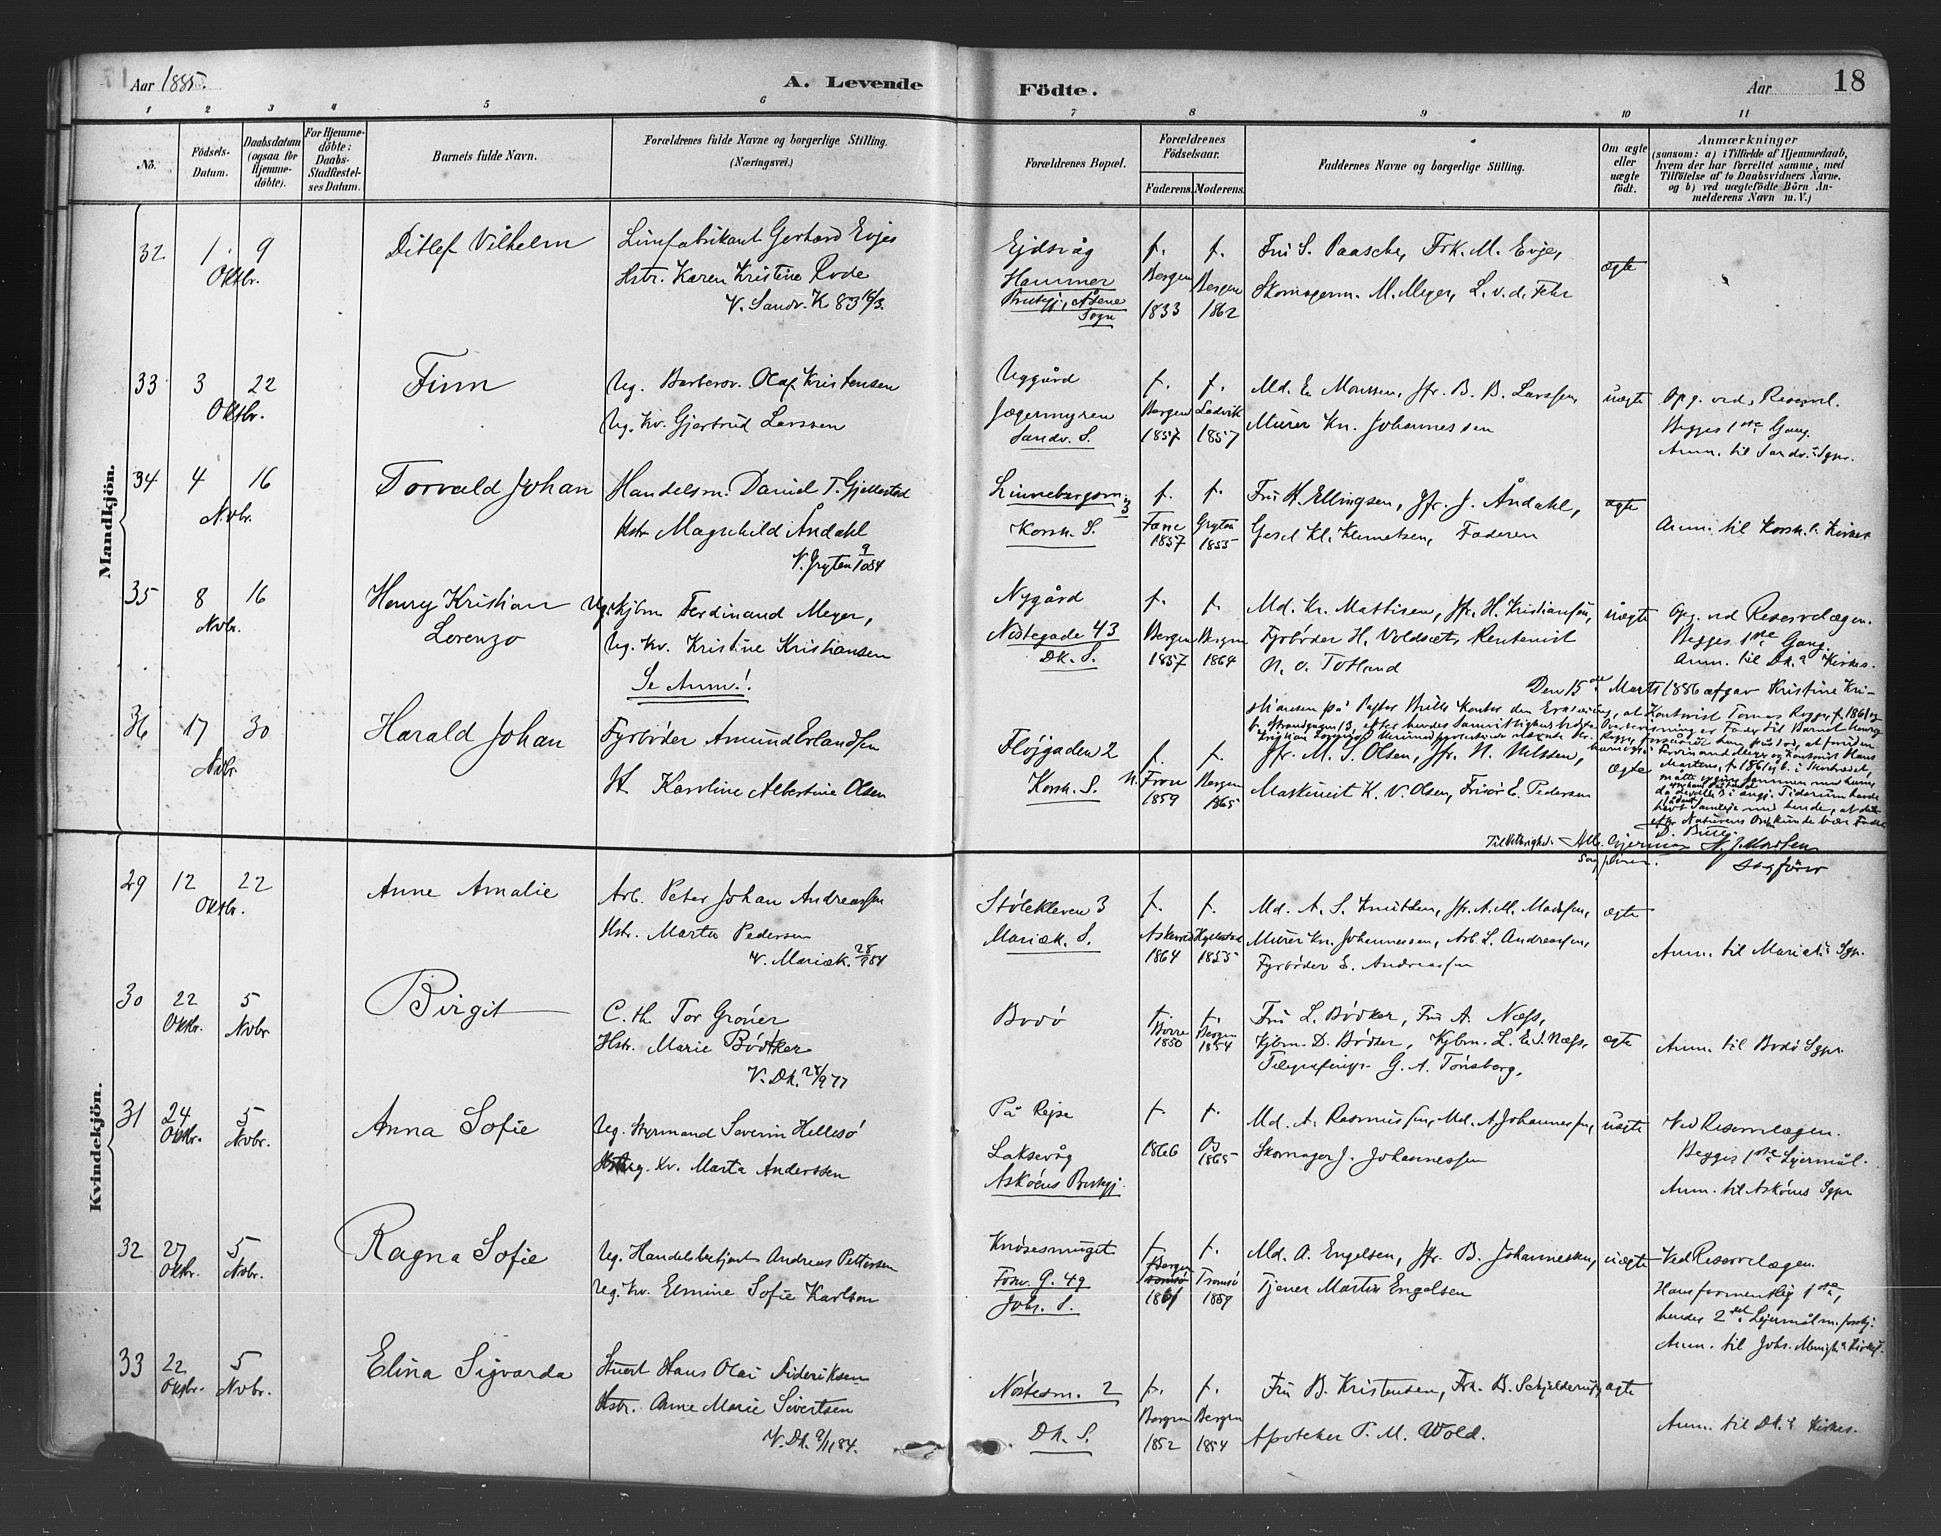 Aar 1885.
A. Levende
Födte.
Aar
18
1
2
3
4
5
6
7
8
9
10
11
No.
Födsels-
Datum.
Daabsdatum
(ogsaa for
Hjemme-
döbte).
For Hjemme-
döbte:
Daabs-
Stadfæstel-
ses Datum.
Barnets fulde Navn.
Forældrenes fulde Navne og borgerlige Stilling.
(Næringsvei.)
Forældrenes Bopæl.
Forældrenes
Födselsaar.
Faderens.
Moderens.
Faddernes Navne og borgerlige Stilling.
Om ægte
eller
uægte
födt.
Anmærkninger
(saasom: a) i Tilfælde af Hjemmedaab,
hvem der har forrettet samme, med
Tilföielse af to Daabsvidners Navne,
og b) ved uægtefödte Börn An-
melderens Navn m. V.)
Mandkjön.
32
1
9
Oktbr.
Ditlef Vilhelm
Limfabrikant Gerhard Evje
Hstr. Karen Kristine Rode
V. Sandv. K 83
Ejdsvåg
Hammer
Prstgj., Åsene
Sogn
f.
Bergen
1833
f.
Bergen
1862
Fru S. Paasche, Frk. M. Evje,
Skomagerm. M. Meyer, L. v. d. Fehr
ægte
33
3
22
Oktbr.
Finn
Ug. Barbersv. Olaf Kristensen
Ug. Kv. Gjertrud Larssen
Nygård
Jægermyren
Sandv. S.
f.
Bergen
1857
f.
Ladvik
1857
Md. E. Monssen, Jfr. B. B. Larssen,
Murer Kn. Johannessen
uægte
Opg. ved Reservel.
Begges 1ste Gang.
Anm. til Sandv. Sgpr.
34
4
16
Nvbr.
Torvald Johan
Handelsm. Daniel T. Gjellestad
Hstr Magnhild Åndahl
V. Gryten 9/10 84
Linnebergsm. 3
Korsk. S.
f.
Fane
1857
f.
Gryten
1855
Fru H. Ellingsen, Jfr. J. Åndahl,
Gesel Kl. Klemetsen, Faderen
ægte
Anm. til Korsk. Kirkes
35
8
16
Nvbr.
Henry Kristian
Lorenzo
Ug. Kjbm Ferdinand Meyer,
Ug. Kv. Kristine Kristiansen
Se Anm.!
Nygård
Nøstegade 43
Dk. S.
f.
Bergen
1857
f.
Bergen
1864
Md. Kr. Mattisen, Jfr. H. Kristiansen,
Fyrbøder H. Voldsæt, Rentenist
N. v. Totland
uægte
Opg. ved Reservelægen.
Begges 1ste Gang.
Anm. til Dk. Kirkes.
Den 15de Marts 1886 afgav Kristine Kri-
stiansen på Pastor Bulls Kontor den Erklæring, at
36
17
30
Nvbr.
Harald Johan
Fyrbøder Amund Erlandsen
H. Karoline Albertine Olsen
Fløjgaden 2
Korsk. S.
f.
N. Fron
1859
f.
Bergen
1865
Jfr. M. S. Olsen, Jfr. N. Nilssen,
Maskinist K. V. Olsen, Frisør E. Pedersen
ægte
Sagfører
Kvindekjön.
29
12
22
Oktbr.
Anne Amalie
Arb. Peter Johan Andreassen
Hstr. Marta Pedersen
V. Mariæk. 28/9 84
Stølekleven 3
Mariæk. S.
f.
Askevold
1864
f.
Hyllestad
1855
Md. A. S. Knutsen, Jfr. A. M. Madsen,
Murer Kn. Johannessen, Arb. L. Andreassen,
Fyrbøder E. Andreassen
ægte
Anm. til Mariæk. Sgpr.
30
22
Oktbr.
5
Nvbr
Birgit
C. th. Tor Grøner
Hstr. Marie Bødtker
V. Dk. 28/9 77
Bodö
f.
Borre
1850
f.
Bergen
1854
Fru L. Bødker, Fru A. Næss,
Kjbm. D. Bødker, Kjbm. L. E. S. Næss,
G. A. Tønsberg,
ægte
Anm. til Bodö Sgpr.
31
24
Oktbr.
5
Nvbr.
Anna Sofie
Ug. Styrmand Severin Hellesö
Ug. Kv. Marta Anderssen
På Rejse
Laksevåg
Askøens Prstgj.
f.
1866
f.
Os
1865
Md. A. Rasmussen, Md. A. Johannessen,
Skomager J. Johannessen
uægte
Ved Reservelægen.
Begges 1ste Lejermål.
Anm. til Askøens Sgpr
32
27
Oktbr.
5
Nvbr.
Ragna Sofie
Ug. Handelsbetjent Andreas Pettersen
Ug. Kv. Elmine Sofie Karlsen
Knøsesmuget
Forv. G. 49
Johs. S.
f.
Bergen
1861
f.
Tromsø
1859
Md. A. Engelsen, Jfr. B. Johannessen,
Tjener Martin Engelsen
uægte
Ved Reservelægen.
Hans formentlig 1ste,
hendes 2det Lejermål m. forskj.
Anm. til Johs. Menigh. Kirkes.
33
22
Oktbr.
5
Nvbr.
Elina Sigvarda
Stuert Hans Olai Dideriksen
Hstr. Anne Marie Sivertsen
V. Dk. 9/11 84.
Nøstesm. 2
Dk. S.
f.
Bergen
1852
f.
Bergen
1854
Fru B. Kristensen, Frk. B. Schjelderup,
Apoteker P. M. Wold.
ægte
Anm. til Dk. Kirkes.